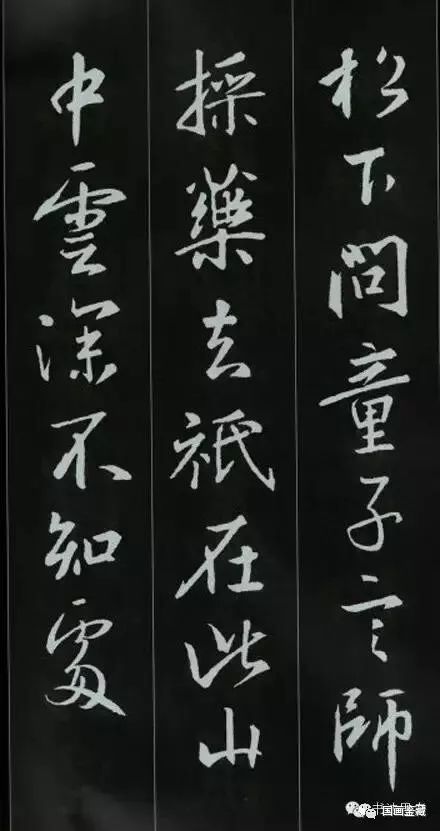 松下問童子言師
採藥去祇在此山
中雲深不知處
国画鉴藏